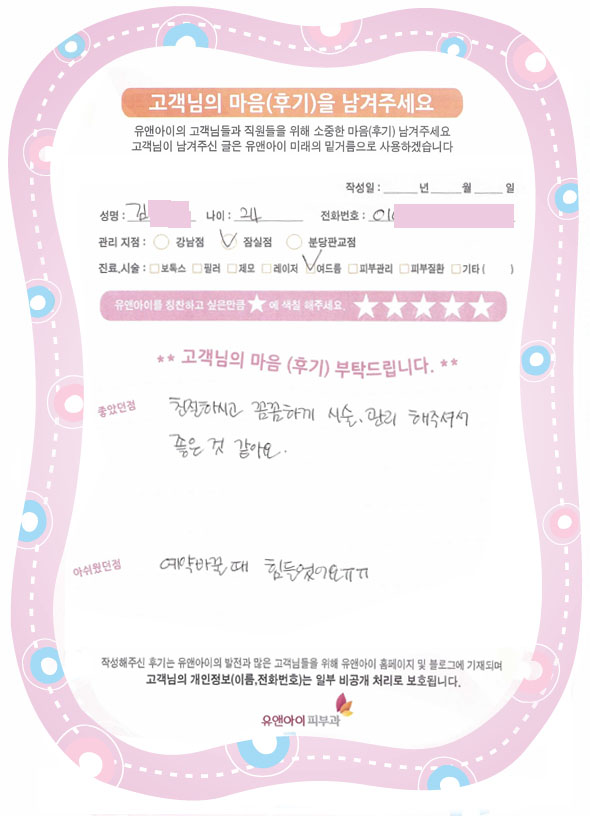 고객님의 마음(후기)을 남겨주세요
유앤아이의 고객님들과 직원들을 위해 소중한 마음(후기) 남겨주세요
고객님이 남겨주신 글은 유앤아이 미래의 밑거름으로 사용하겠습니다
작성일 : 년 월 일
성명 : 김 나이 : 24 전화번호 : 01
관리 지점 : 강남점 잠실점 분당판교점
진료,시술 : 보톡스 필러 제모 레이저 여드름 피부관리 피부질환 기타 ( )
유앤아이를 칭찬하고 싶은만큼 ★ 에 색칠 해주세요. ★★★★★
** 고객님의 마음 (후기) 부탁드립니다. **
좋았던점 친절하시고 꼼꼼하게 시술, 관리 해주셔서
좋은 것 같아요.
아쉬웠던점 예약바꿀때 힘들었어요ㅠㅠ
작성해주신 후기는 유앤아이의 발전과 많은 고객님들을 위해 유앤아이 홈페이지 및 블로그에 기재되며
고객님의 개인정보(이름,전화번호)는 일부 비공개 처리로 보호됩니다.
유앤아이 피부과